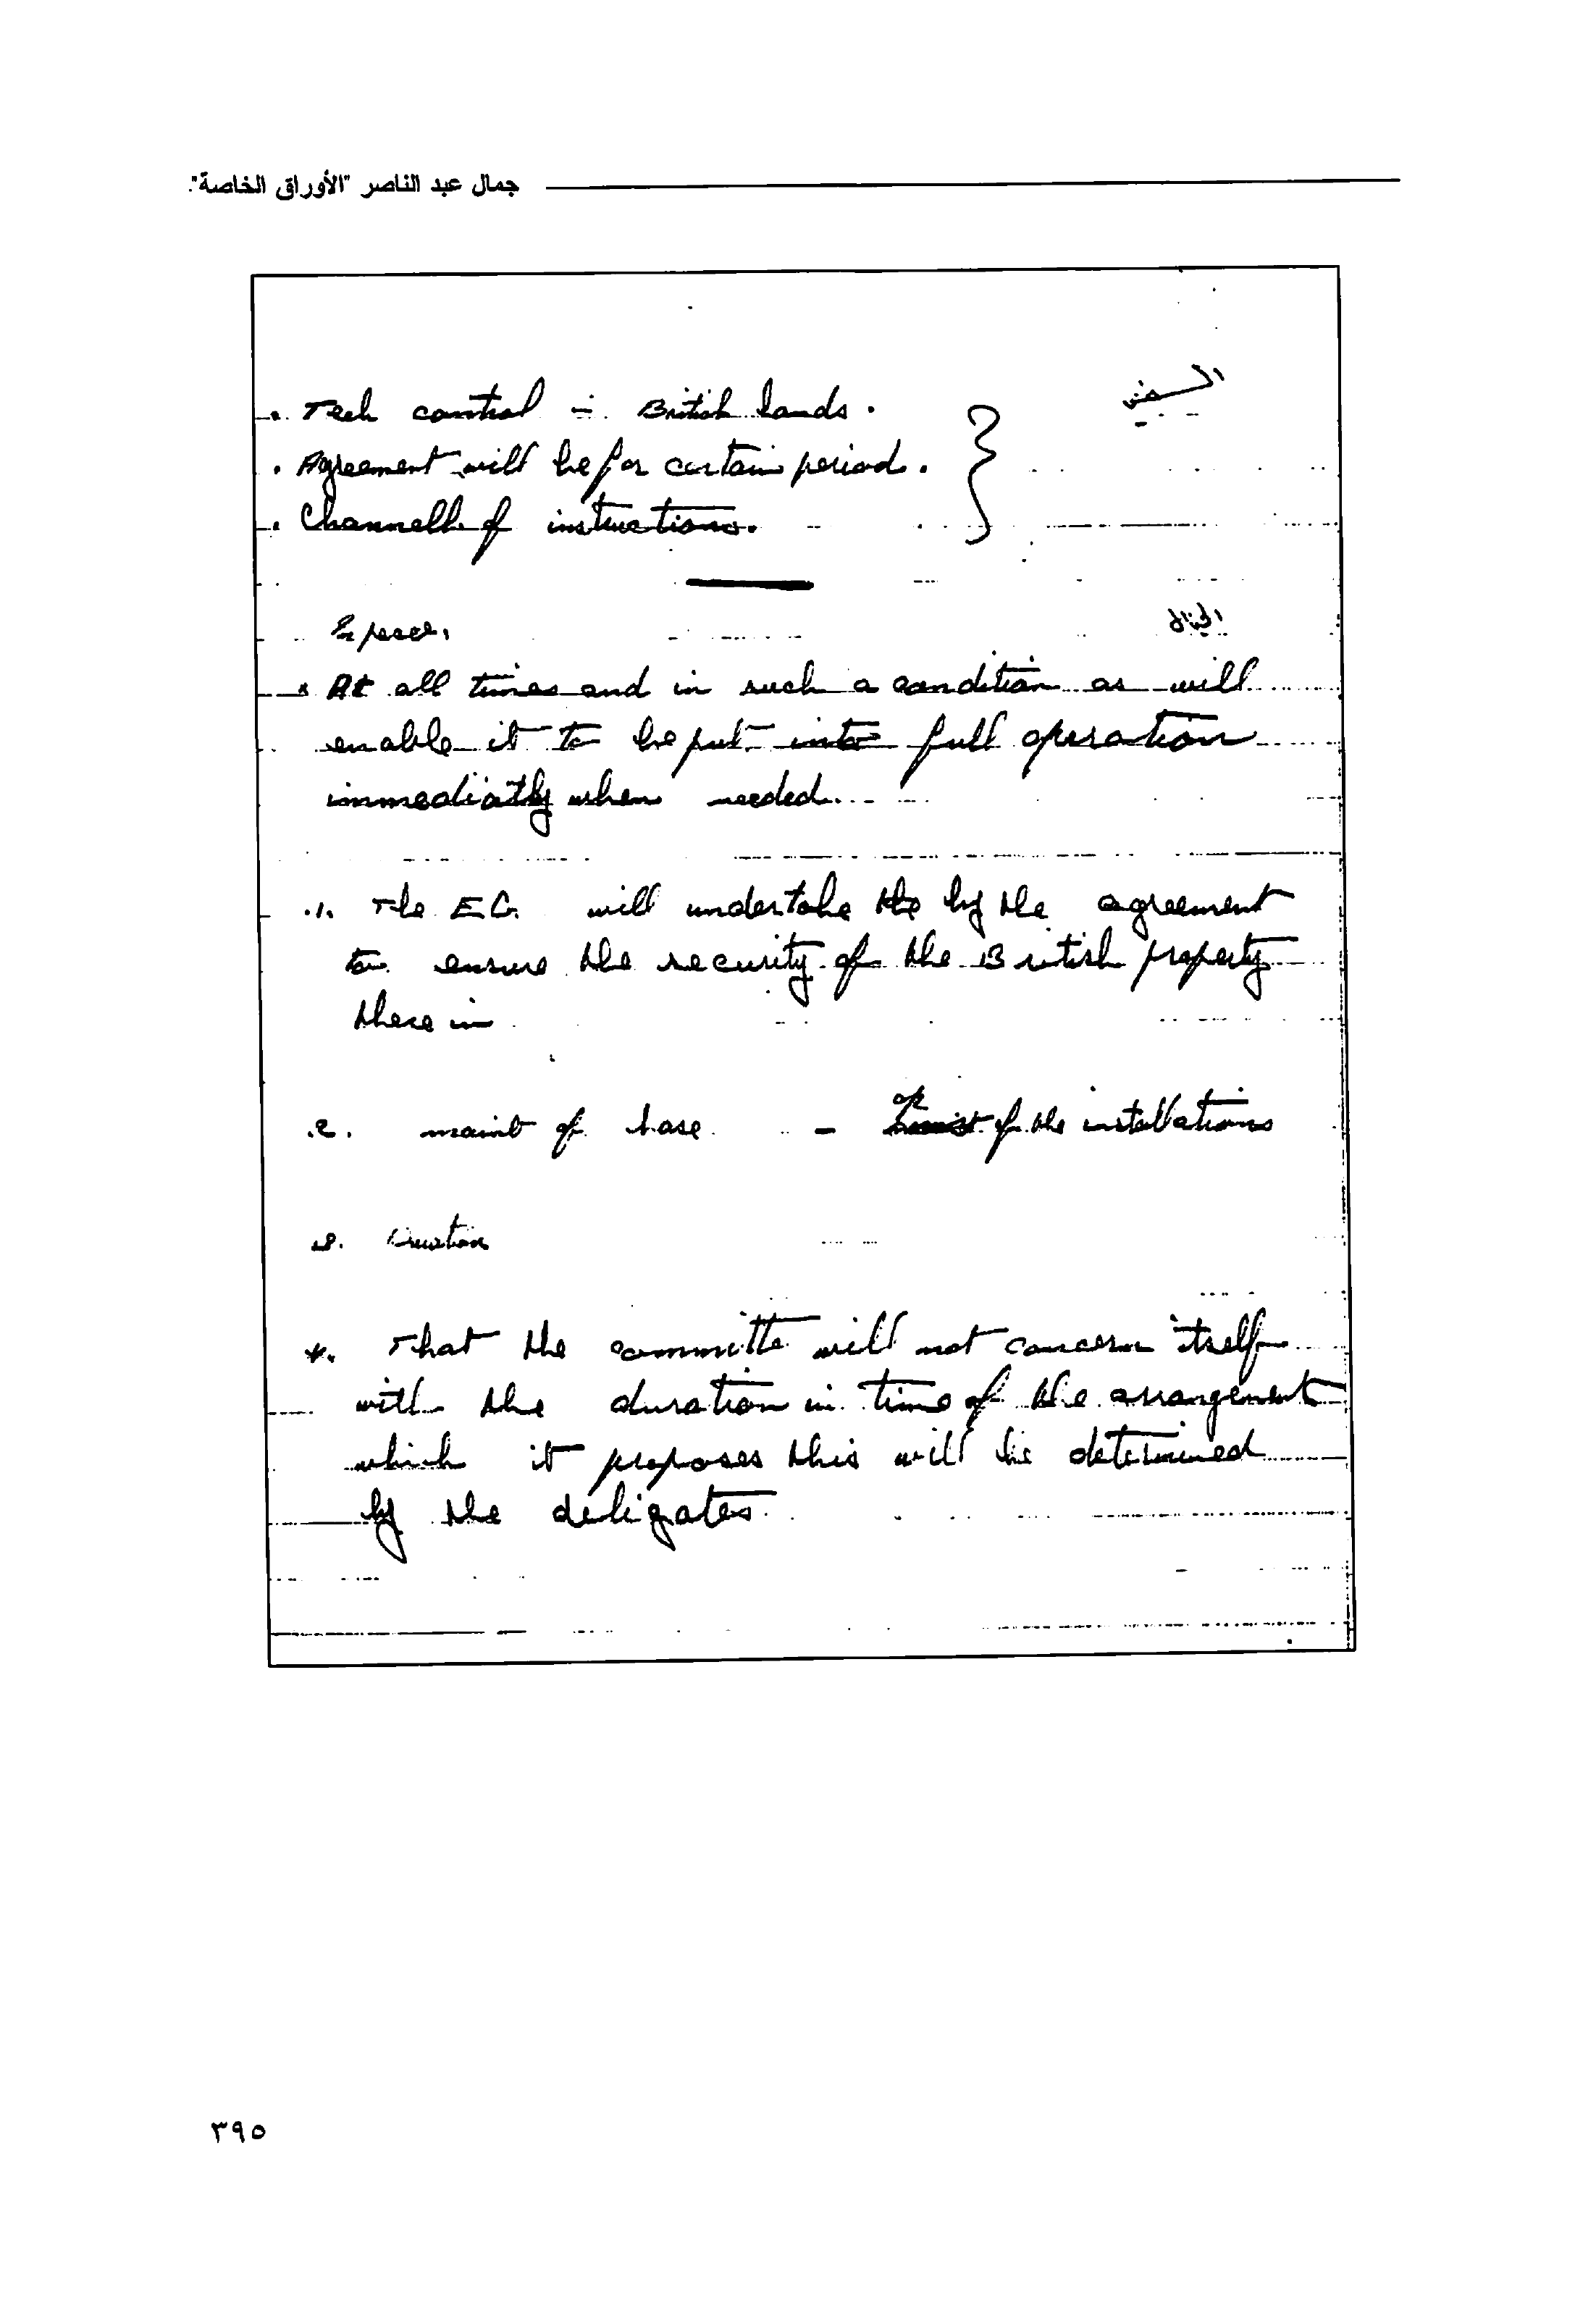 جمال عبد الناصر "الأوراق الخاصة".
. Tech control in British lands.
. Agreement will be for certain period.
. Channells of instructions.
In peace,
* At all times and in such a condition as will
enable it to be put into full operation
immediatly when needed.
.1. The E.G. will undertake the by the agreement
to ensure the security of the British property
there in
.2. maint of base - of the installations
3. Duration
*. That the committe will not concern itself
with the duration in time of the arrangement
which it proposes this will be determined
by the deligates
٣٩٥